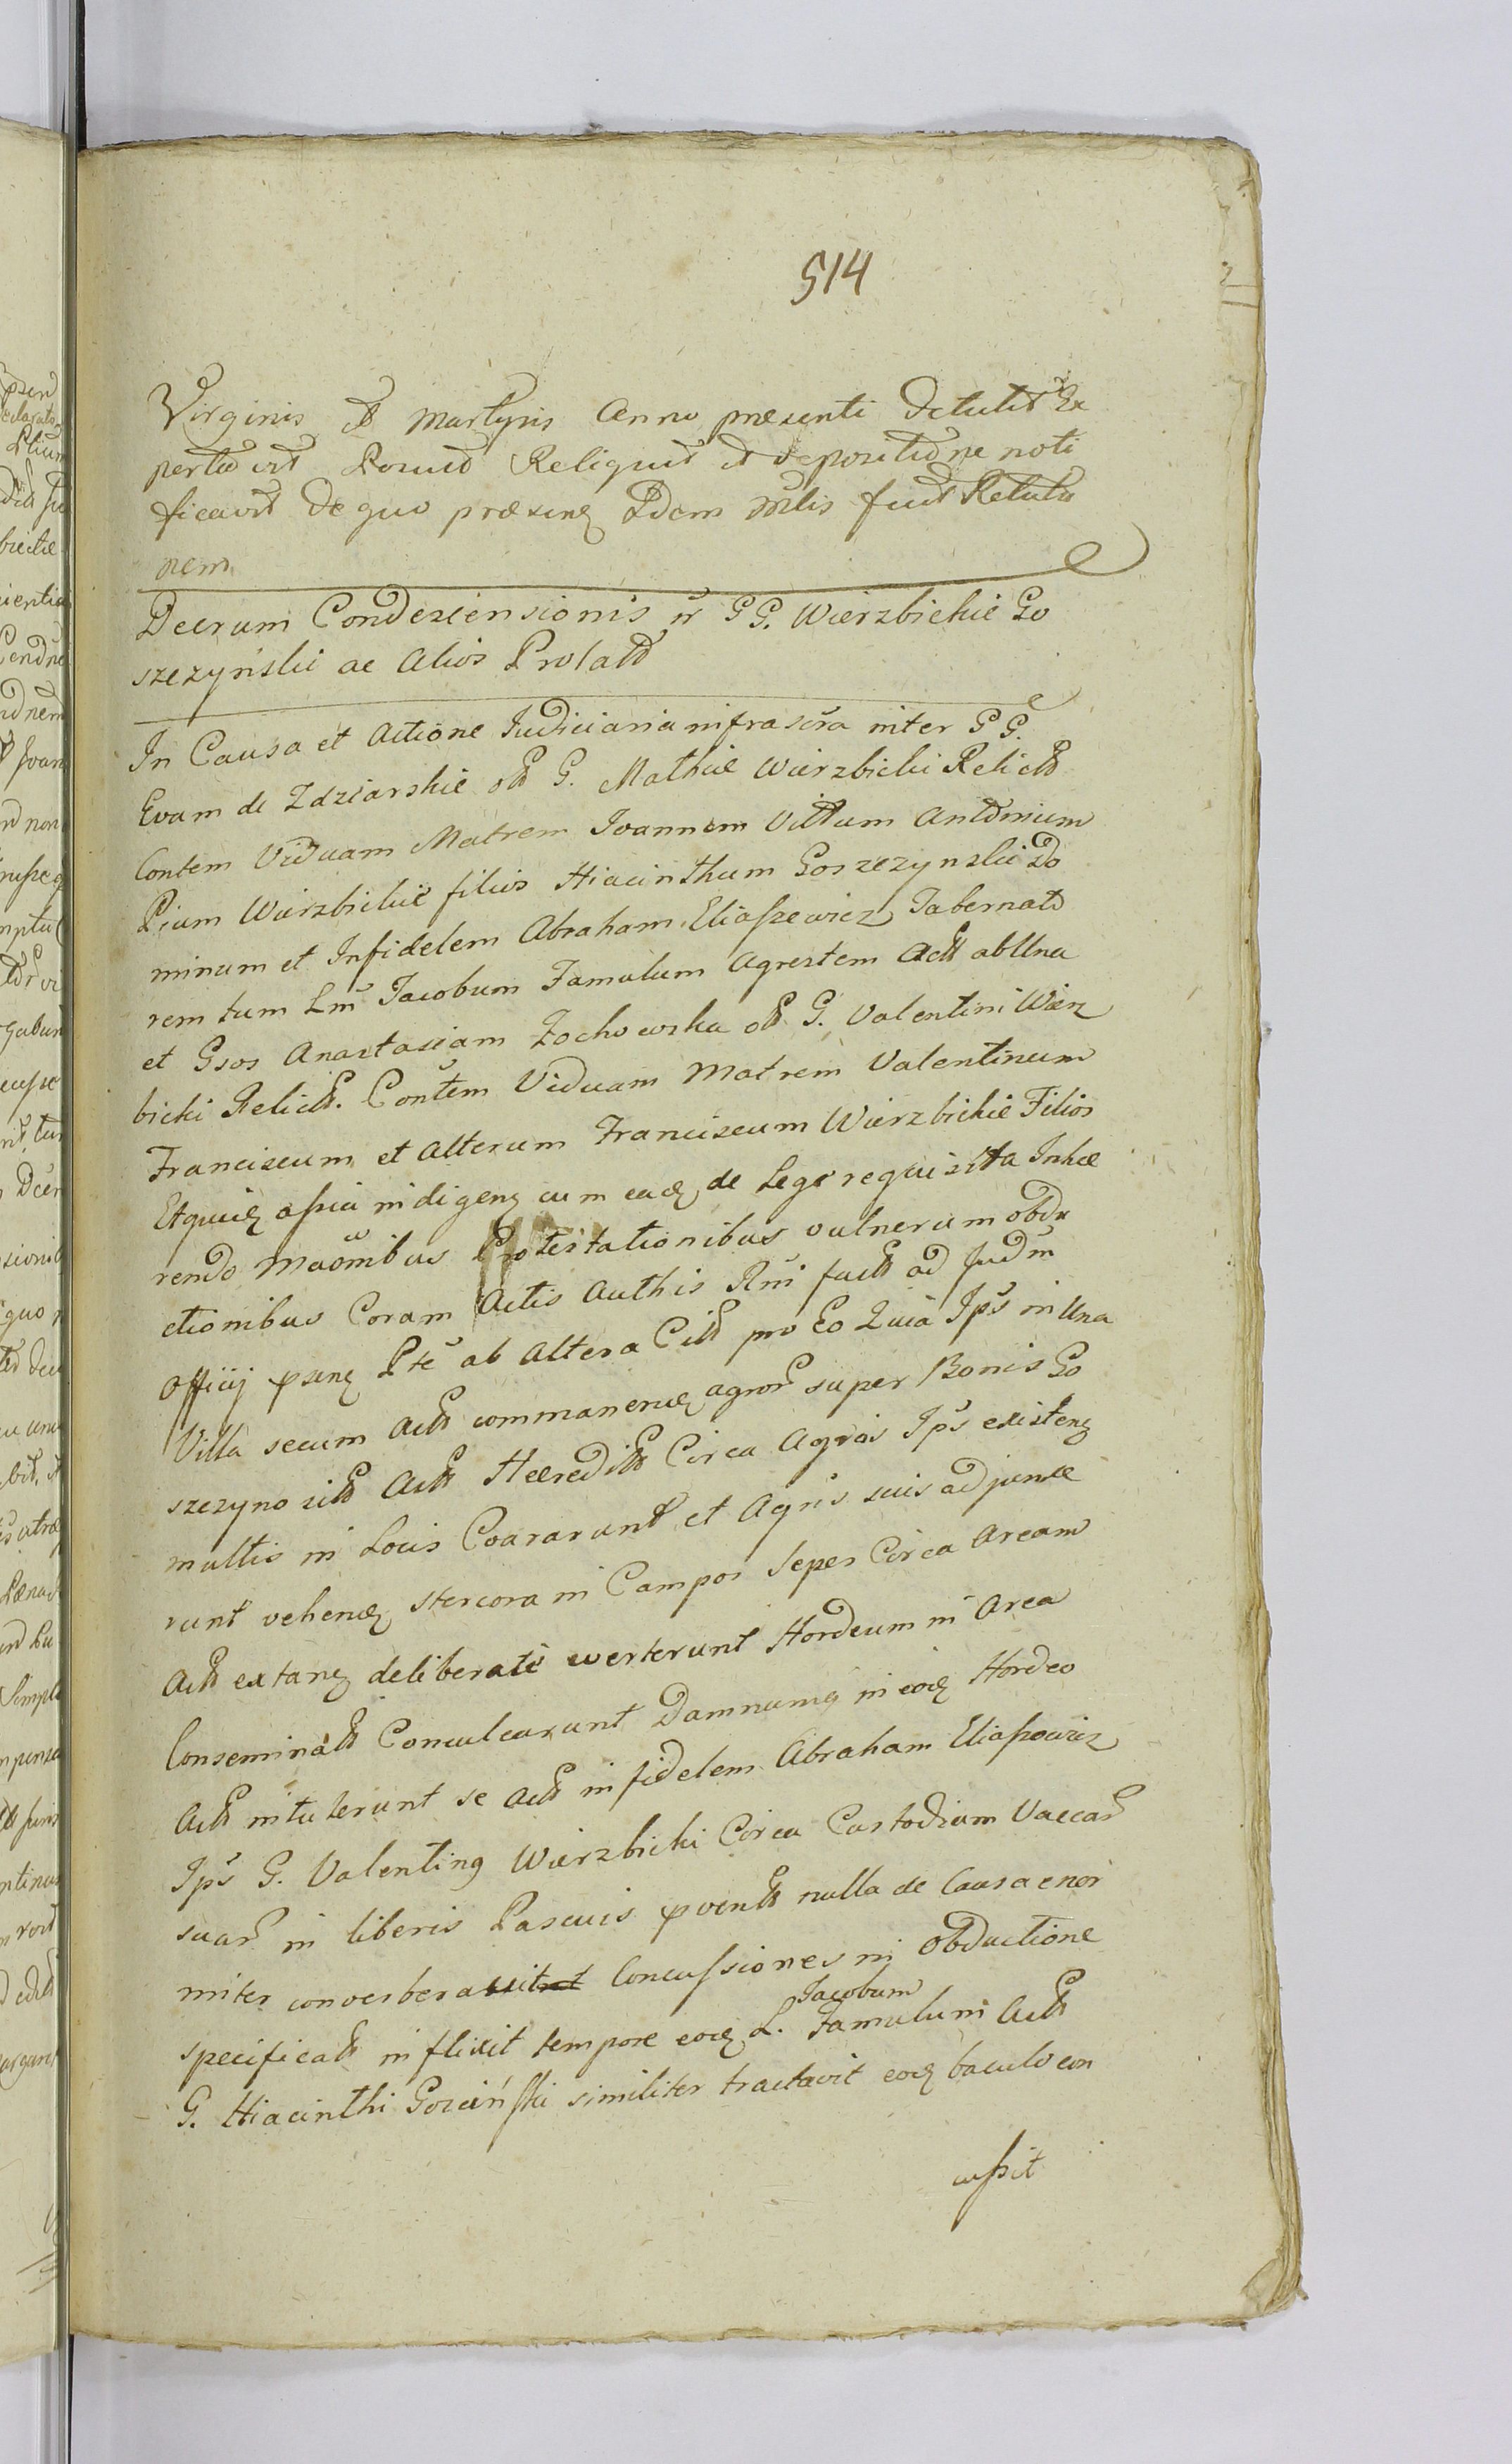 514
Virginis et Martyris Anno præsenti detulit Ex
pertus vit Posuit Reliquit et depositione noti
ficavit de quo præsens Idem Mlis fuit Relatio
nem
Decrum Condescensionis ir GG. Wierzbickie Go
szczyński ac Alios Prolatt
In Causa et Actione Judiciaria infrascra inter GG.
Evam de Zdziarskie ott G. Mathiæ Wierzbicki Relictt
Contem Viduam Matrem Joannem Vittum Antonium
Pium Wierzbickie filios Hiacinthum Goszczynski Do
minum et Infidelem Abraham Eliaszewicz Tabernato
rem tum Lm Jacobum Famulum Agrestem Actt ab Una
et Gsos Anastasiam Zochowska ott G. Valentini Wierz
bicki Relictt. Contem Viduam Matrem Valentinum
Franciscum et Alterum Franciscum Wierzbickie Filios
Et quia indigen cum ead de Lege requisita Inhæ
rendo Maonibus Protestationibus vulnerum obdu
ctionibus Coram Actis Authis Rni factt ad Judm
Officij psens Pte ab Altera Citt pro Eo Quia Ips in Una
Villa secum Actt commanen agror super Bonis Go
szczyno sitt Actt Hæreditt Circa Agros Ips existen
multis in Locis Coararunt et Agris suis adjunxe
runt vehen stercora in Campos Sepes Circa Aream
Actt extan deliberate everterunt Hordeum in Area
Conseminatt Conculcarunt Damnumq in eod Hordeo
Actt intulerunt se Actt infidelem Abraham Eliaszewicz
Ips G. Valentinq Wierzbicki Circa Custodiam Vaccar
suar in liberis Pascuis pventt nulla de Causa enor
miter converberavit Concussiones in Obductione
specificatt inflixit tempore eod L. Jacobum Famulum Actt
G. Hiacinthi Gościński similiter tractavit eod baculo con
cussit